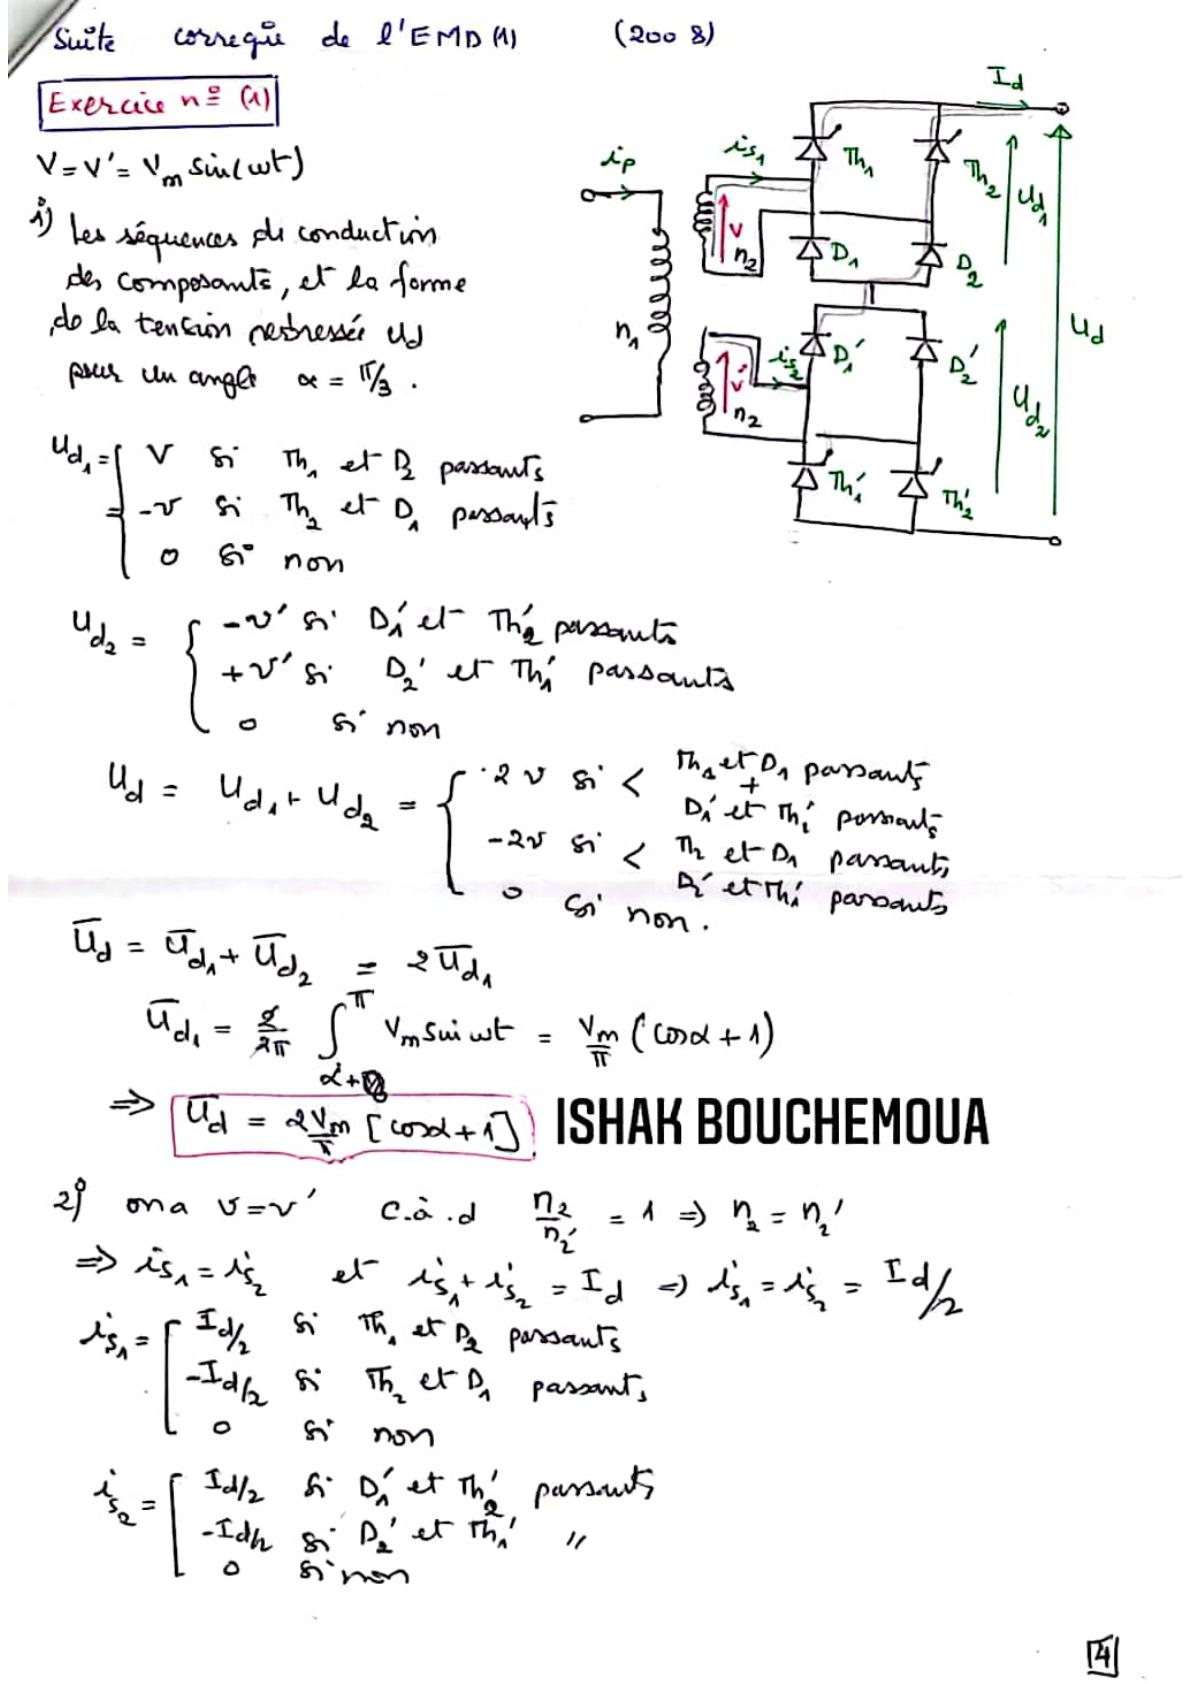 Suite corrigé de l'EMD (1) (2008)
Exercice n° (1)
V = V' = Vm sin(wt)
1) Les séquences de conduction
des composants, et la forme
de la tension redressée Ud
pour un angle α = π/3.
Id
ip
is1
Th1
Th2
Ud1
v
n2
D1
D2
n1
Ud
is2
D1'
D2'
v'
n2
Ud2
Th1'
Th2'
Ud1 = V si Th1 et D2 passants
= -v si Th2 et D1 passants
0 si non
Ud2 = -v' si D1' et Th2' passants
+v' si D2' et Th1' passants
0 si non
Ud = Ud1 + Ud2 = 2v si < Th1 et D1 passants
+
D1' et Th1' passants
-2v si < Th2 et D1 passants
D2' et Th1' passants
0 si non.
Ūd = Ūd1 + Ūd2 = 2Ūd1
Ūd1 = 2/2π ∫α+0^π Vm sin wt = Vm/π (cosα + 1)
⇒ Ūd = 2Vm/π [cosα + 1]
ISHAK BOUCHEMOUA
2) on a v = v' c.à.d n2/n2' = 1 ⇒ n2 = n2'
⇒ is1 = is2 et is1 + is2 = Id ⇒ is1 = is2 = Id/2
is1 = Id/2 si Th1 et D2 passants
-Id/2 si Th2 et D1 passants
0 si non
is2 = Id/2 si D1' et Th2' passants
-Id/2 si D2' et Th1' "
0 si non
4